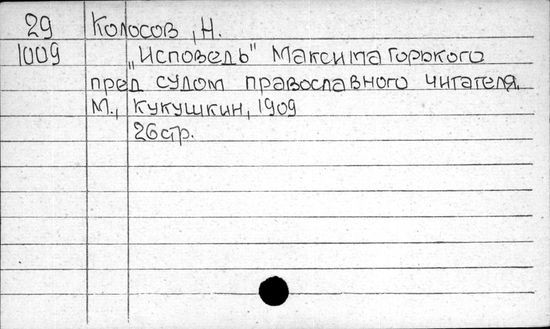 29 Колосов, Н.
1009 „Исповедь" Максима Горького
пред судом православного читателя.
М., Кукушкин, 1909
26стр.